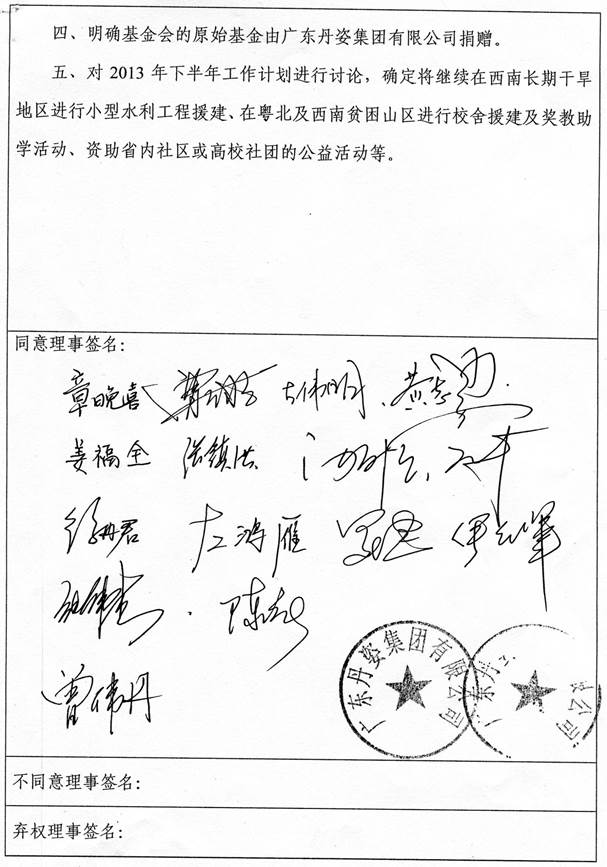 四、明确基金会的原始基金由广东丹姿集团有限公司捐赠。
五、对 2013 年下半年工作计划进行讨论，确定将继续在西南长期干旱
地区进行小型水利工程援建、在粤北及西南贫困山区进行校舍援建及奖教助
学活动、资助省内社区或高校社团的公益活动等。
同意理事签名：
章晚喜
姜福全 张镇洪
徐丹君 左鸿雁
曾伟丹
广东丹姿集团有限公司
广东丹 公司
不同意理事签名：
弃权理事签名：